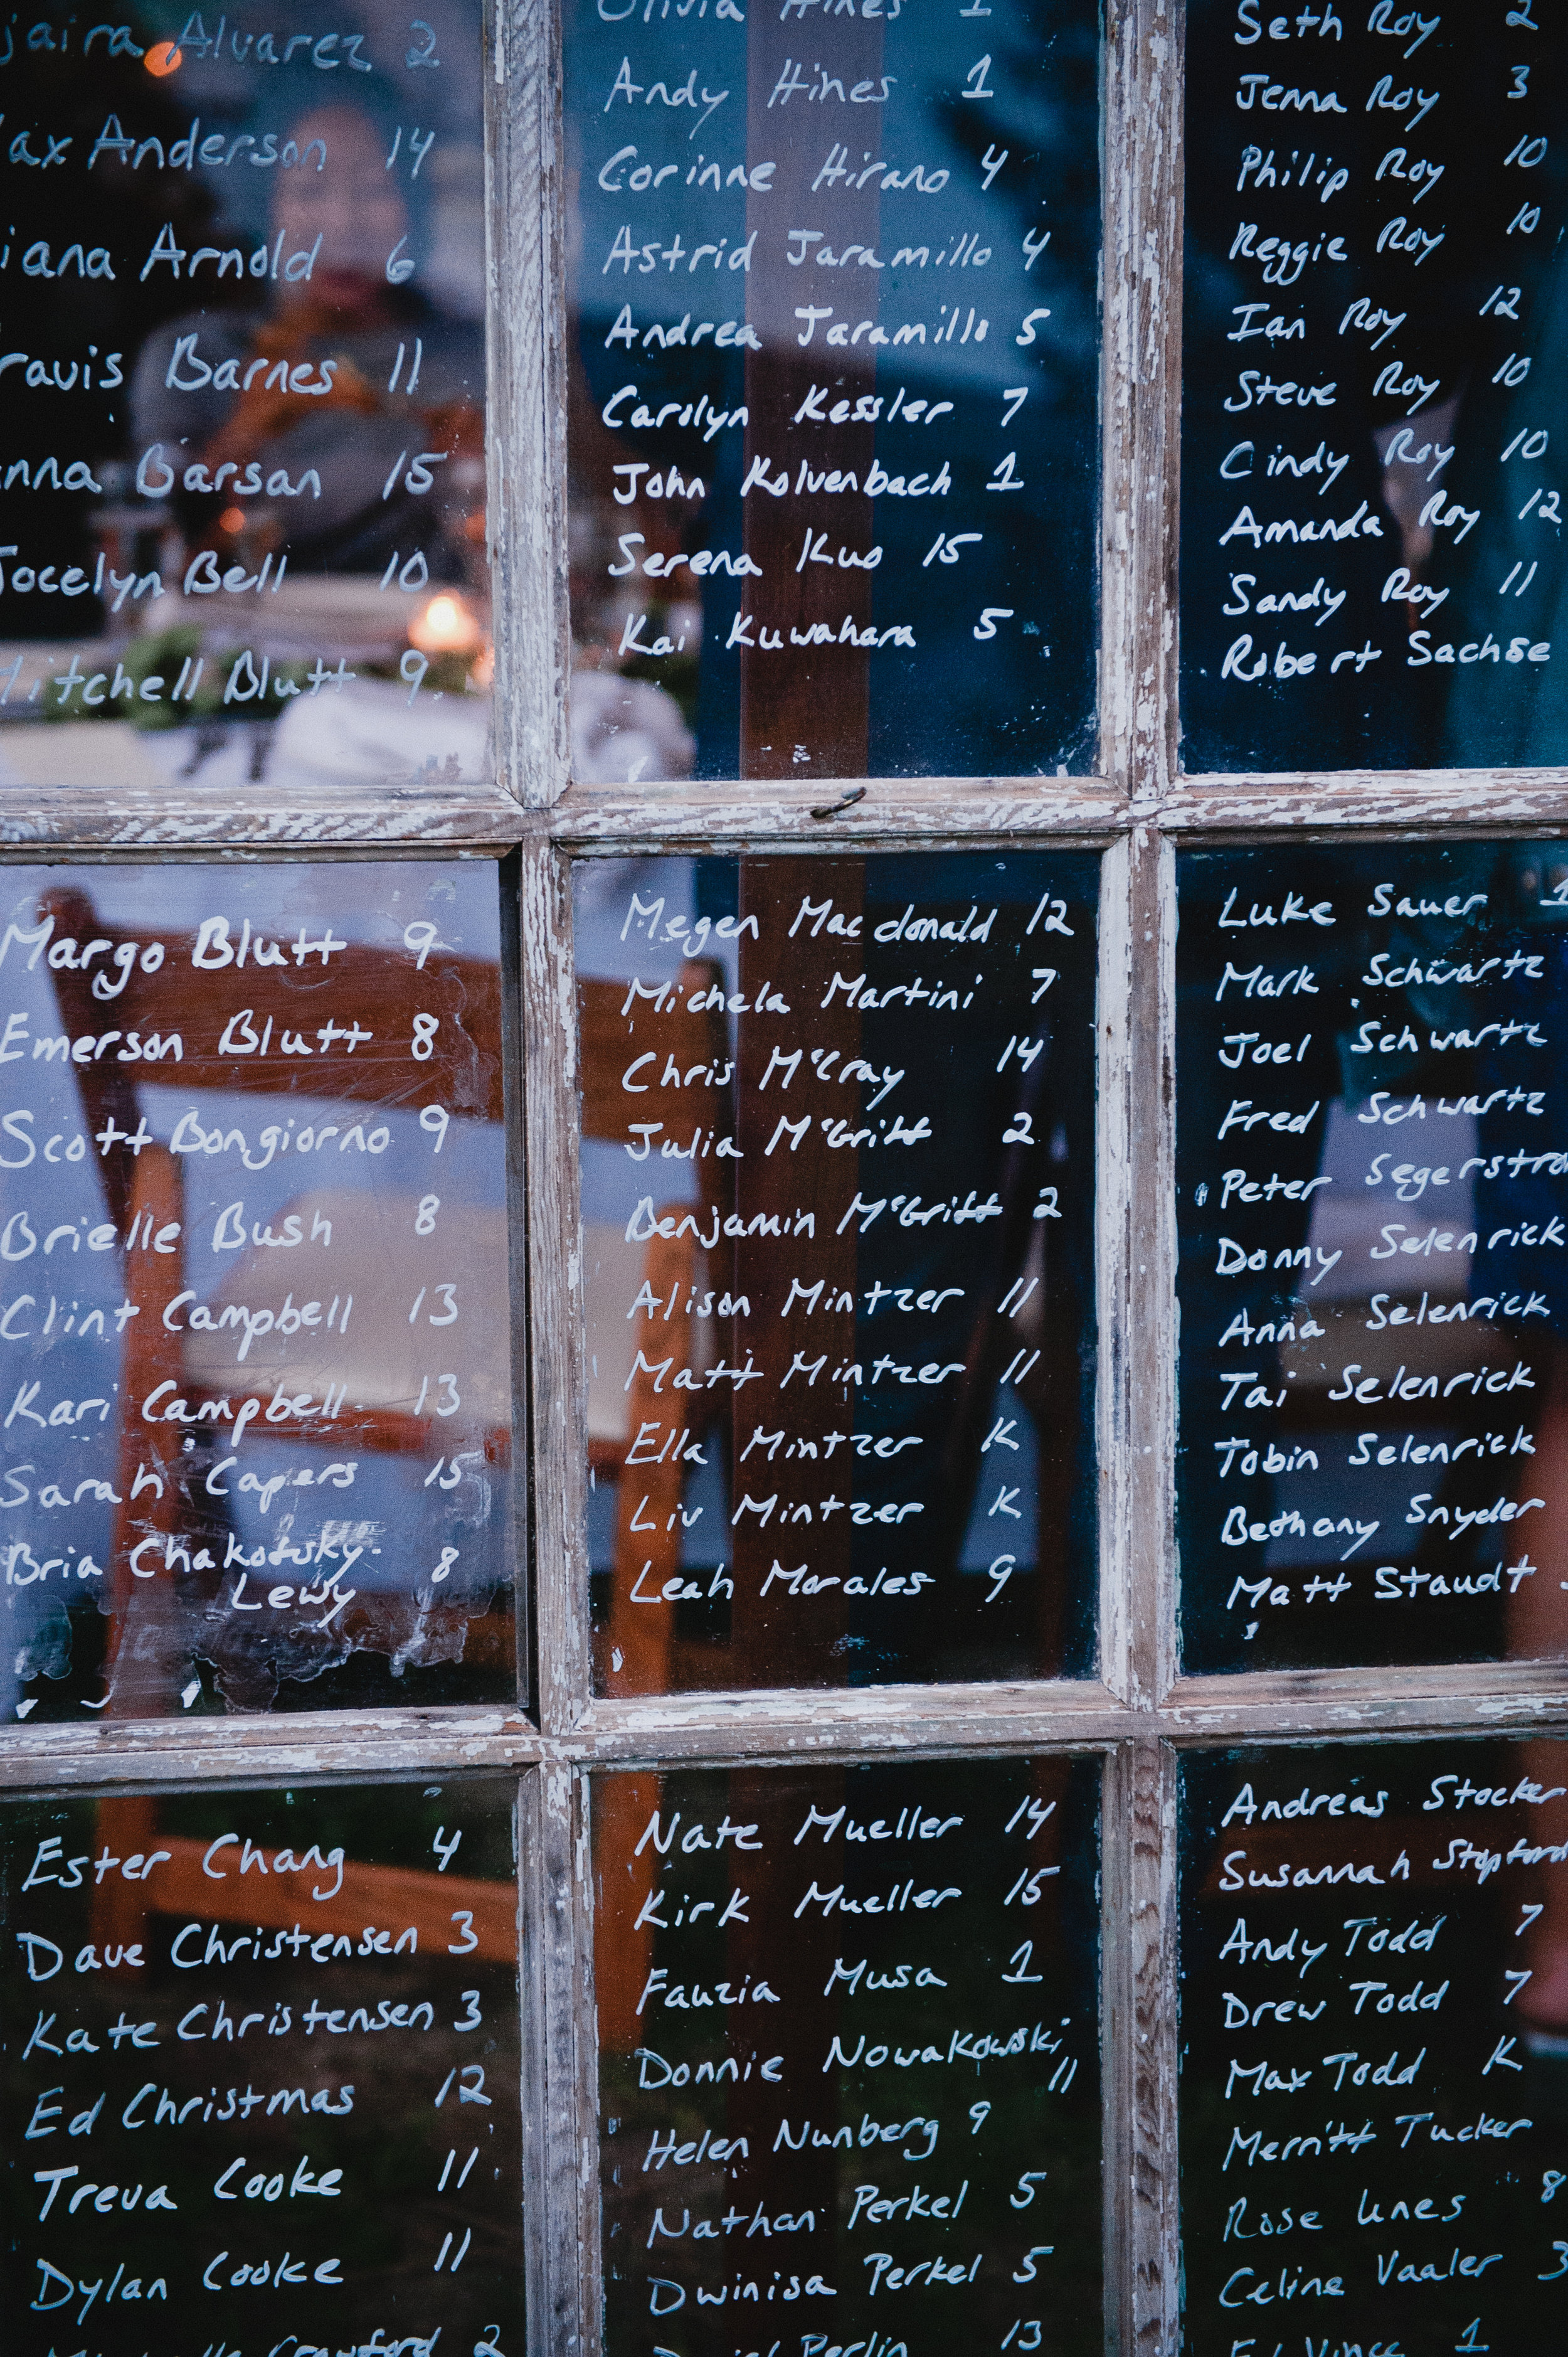 Alvarez 2
Anderson 14
Arnold 6
Barnes 11
Barsan 15
Jocelyn Bell 10
Mitchell Blutt 9
Margo Blutt 9
Emerson Blutt 8
Scott Bongiorno 9
Brielle Bush 8
Clint Campbell 13
Kari Campbell 13
Sarah Capers 15
Bria Chakofsky- 8
Lewy
Ester Chang 4
Dave Christensen 3
Kate Christensen 3
Ed Christmas 12
Treva Cooke 11
Dylan Cooke 11
Crawford 2
Olivia Hines 1
Andy Hines 1
Corinne Hirano 4
Astrid Jaramillo 4
Andrea Jaramillo 5
Carolyn Kessler 7
John Kolvenbach 1
Serena Kuo 15
Kai Kuwahara 5
Megen Macdonald 12
Michela Martini 7
Chris McCray 14
Julia McGriff 2
Benjamin McGriff 2
Alison Mintzer 11
Matt Mintzer 11
Ella Mintzer K
Liv Mintzer K
Leah Morales 9
Nate Mueller 14
Kirk Mueller 15
Fauzia Musa 1
Donnie Nowakowski
11
Helen Nunberg 9
Nathan Perkel 5
Dwinisa Perkel 5
Perlin 13
Seth Roy 2
Jenna Roy 3
Philip Roy 10
Reggie Roy 10
Ian Roy 12
Steve Roy 10
Cindy Roy 10
Amanda Roy 12
Sandy Roy 11
Robert Sachse
Luke Sauer
Mark Schwartz
Joel Schwartz
Fred Schwartz
Peter
Donny Selenrick
Anna Selenrick
Tai Selenrick
Tobin Selenrick
Bethany Snyder
Matt Staudt
Andreas Stocker
Susannah
Andy Todd 7
Drew Todd 7
Max Todd K
Merritt Tucker
Rose Unes 8
Celine Vaaler 3
Ed Vince 1